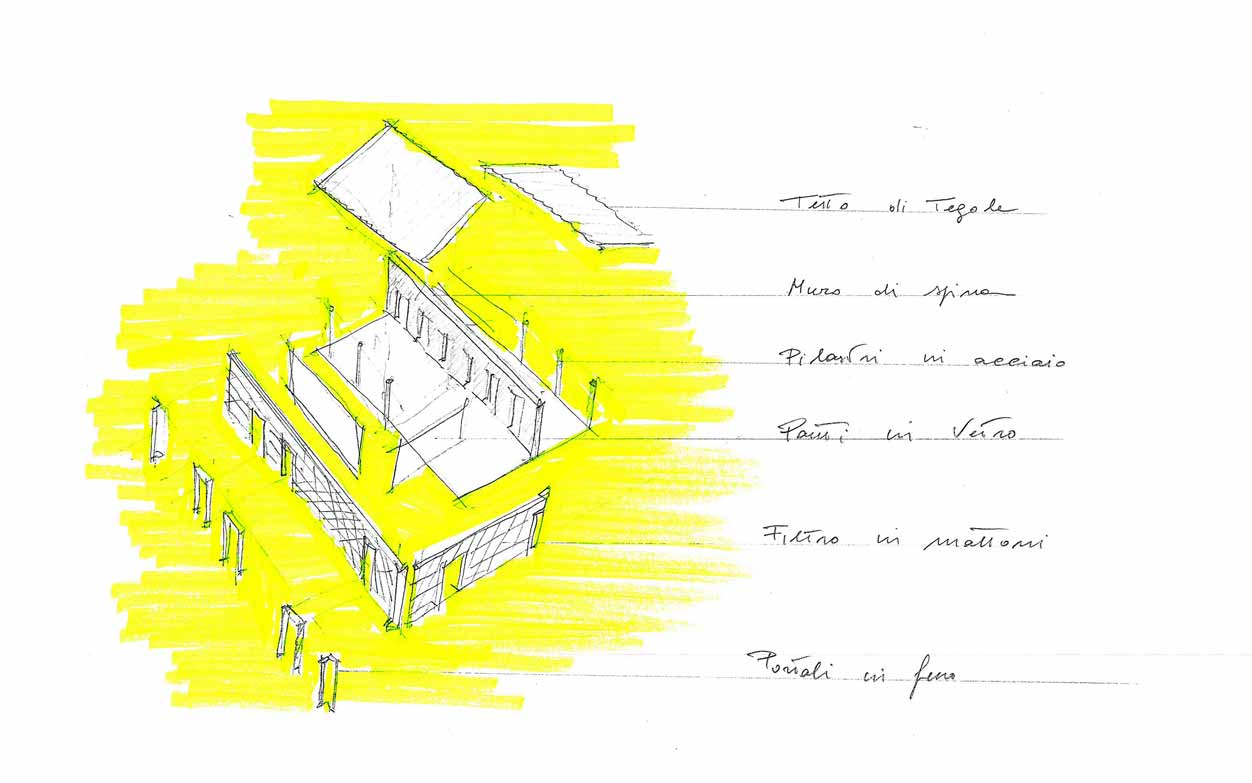 Tetto di Tegole
Muro di spina
Pilastri in acciaio
Pareti in Vetro
Filtro in mattoni
Portali in ferro